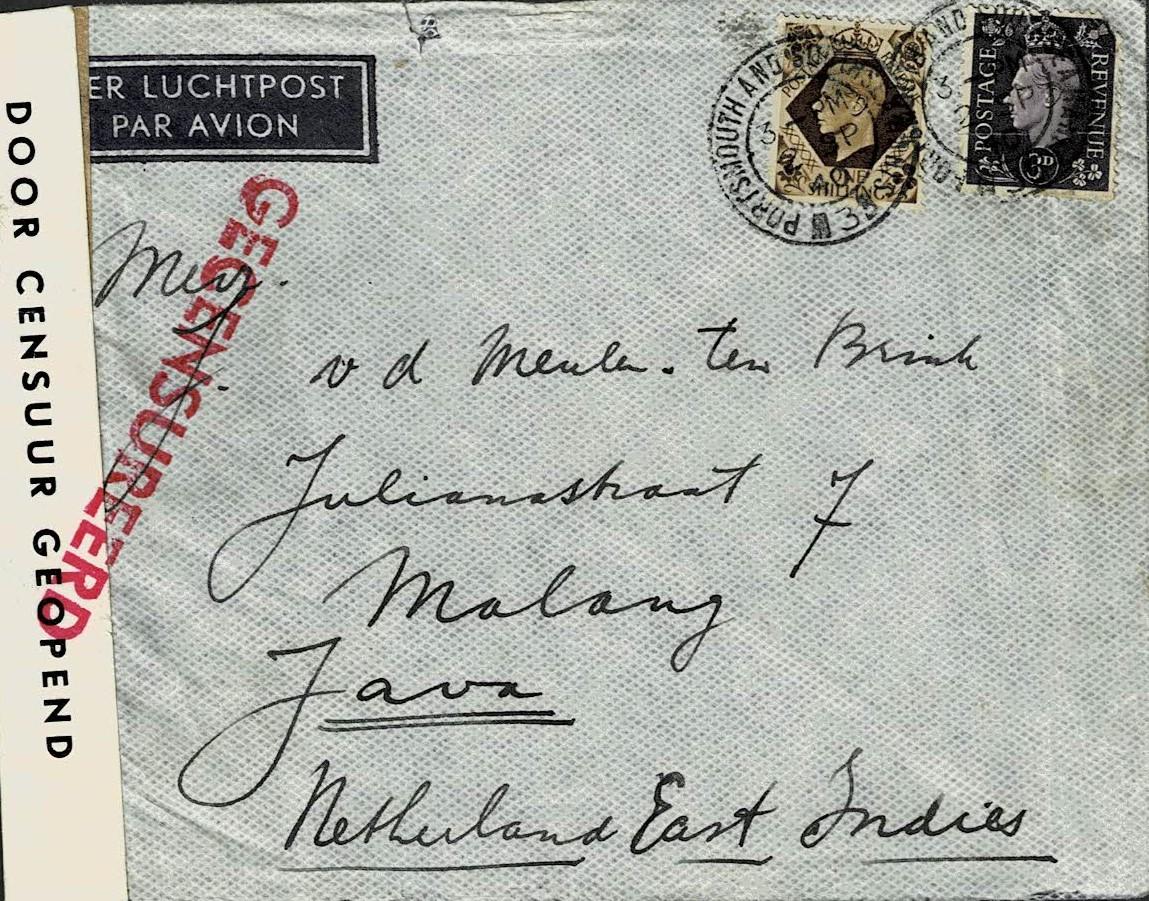 ER LUCHTPOST
PAR AVION
DOOR CENSUUR GEOPEND
GECENSUREERD
PORTSMOUTH AND
POSTAGE REVENUE
3D
ONE
SHILLING
Mevr.
J. v d Meulen. ten Brink
Julianastraat 7
Malang
Java
Netherland East Indies